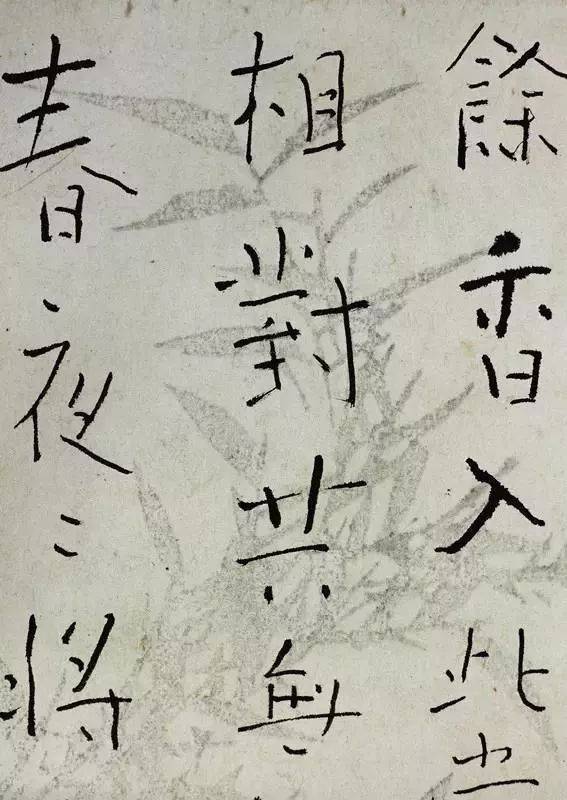 餘香入
相對共無
春夜〻將